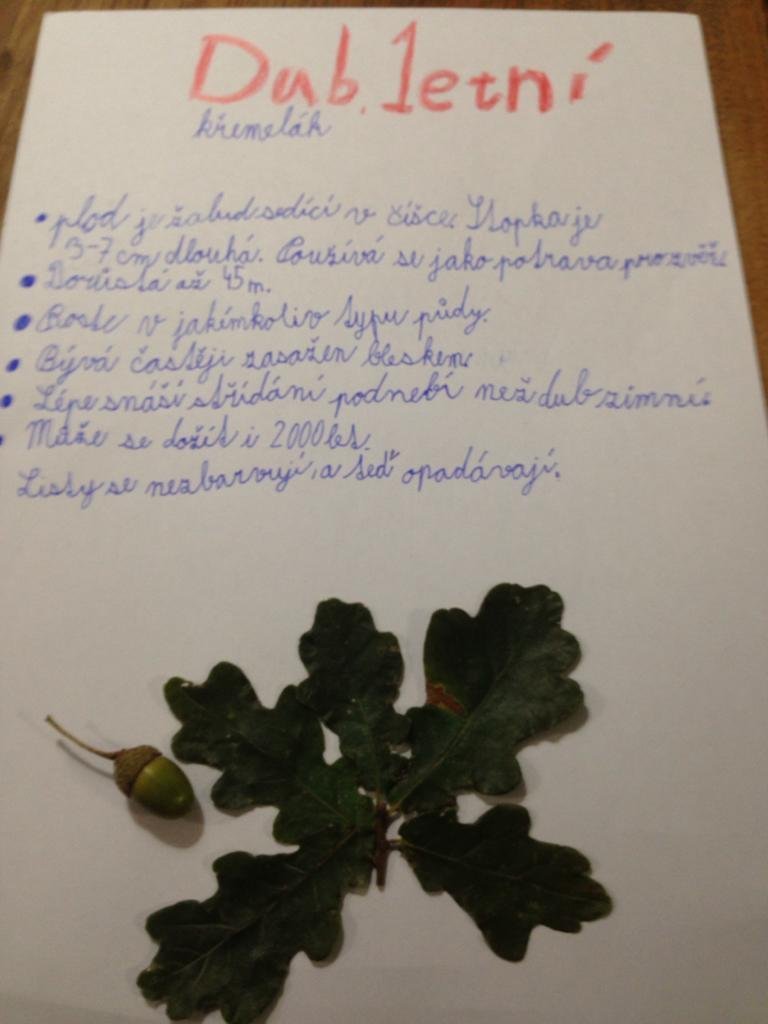 Dub letní
křemelák
• plod je žalud sedící v číšce. Stopka je
3-7 cm dlouhá. Používá se jako potrava pro zvěř.
• Dorůstá až 45 m.
• Roste v jakímkoliv typu půdy.
• Bývá častěji zasažen bleskem.
• Lépe snáší střídání podnebí než dub zimní.
• Může se dožít i 2000 let.
Listy se nezbarvují, a teď opadávají.